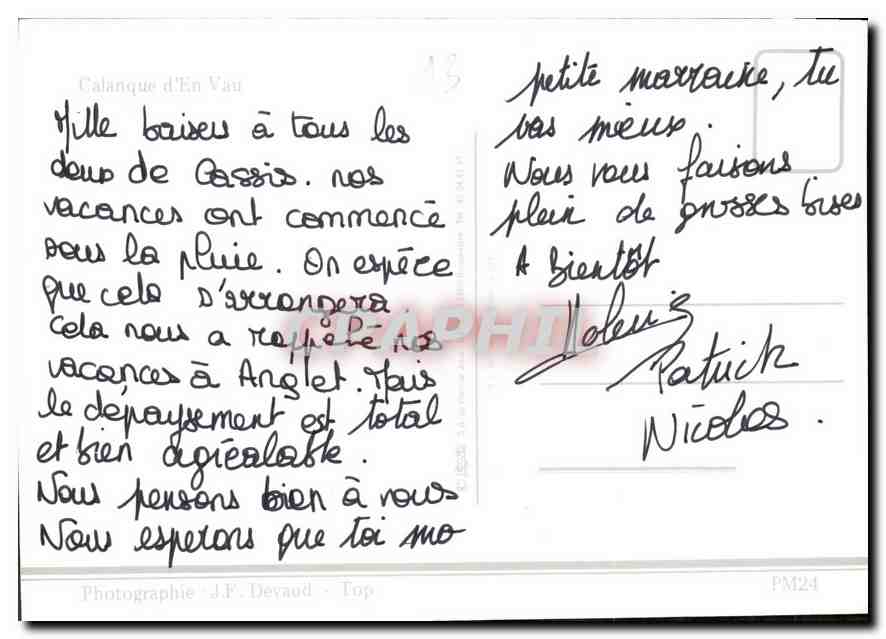 Calanque d'En Vau
13
Mille baisers à tous les
deux de Cassis. nos
vacances ont commencé
sous la pluie. On espéce
que cela s'arrangera.
cela nous a rappelé nos
vacances à Anglet. Mais
le dépaysement est total
et bien agréalable.
Nous pensons bien à vous
Nous esperons que toi ma
petite marraine, tu
vas mieux.
Nous vous faisons
plein de grosses bises
A Bientôt
Patrick
Nicolas.
Photographie - J.F. Devaud - Top
PM24